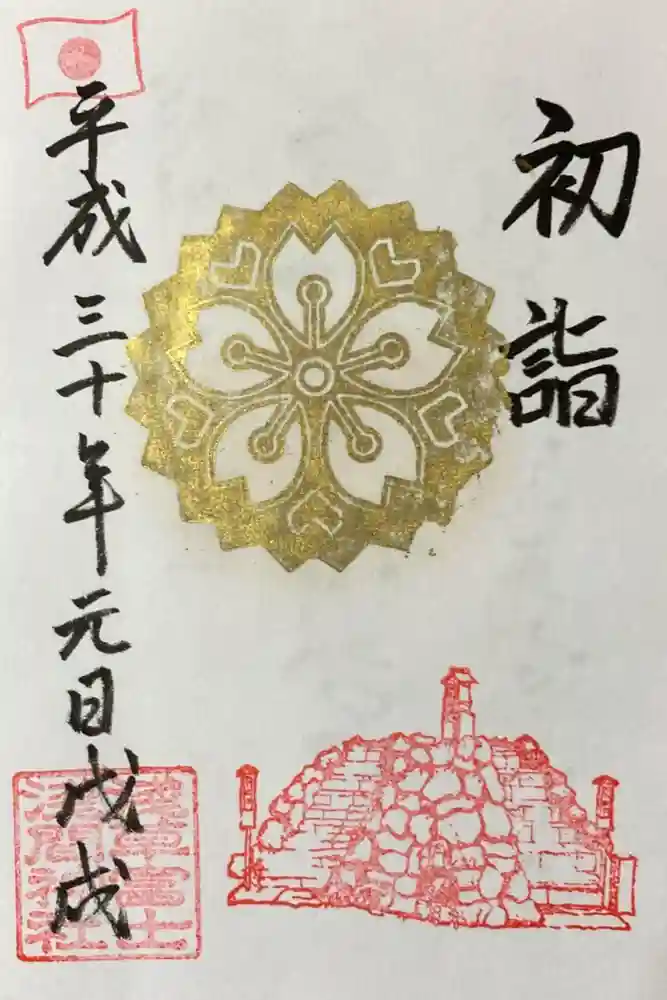 初詣
平成三十年元日戊戌
浅草富士
浅間神社